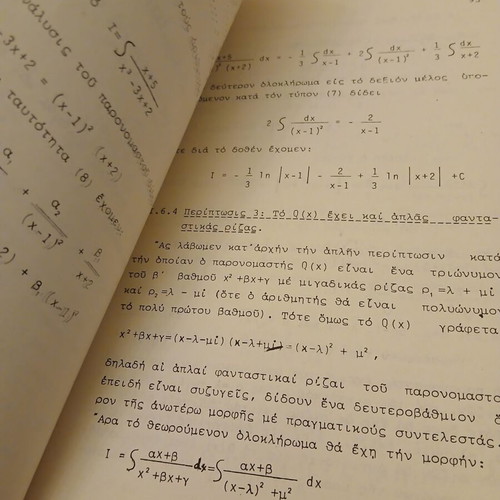 I = ∫ x+5 / x³-3x+2
ἀνάλυσις τοῦ παρονομαστοῦ
-3x+2 = (x-1)² (x+2)
ταυτότητα (8) ἔχομεν
+ α₂ / (x-1)² + β₁ / x+2
+ β₁ (x-1)²
x+5 / (x+2) dx = - 1/3 ∫ dx/x-1 + 2∫ dx/(x-1)² + 1/3 ∫ dx/x+2
δεύτερον ὁλοκλήρωμα εἰς τό δεξιόν μέλος ὑπο-
μενον κατά τόν τύπον (7) δίδει
2 ∫ dx/(x-1)² = - 2/x-1
διά τό δοθέν ἔχομεν:
I = - 1/3 ln |x-1| - 2/x-1 + 1/3 ln |x+2| +C
.6.4 Περίπτωσις 3: Τό Q(x) ἔχει καί ἁπλᾶς φαντα-
στικάς ρίζας.
Ἄς λάβωμεν κατ'ἀρχήν τήν ἁπλῆν περίπτωσιν κατά
τήν ὁποίαν ὁ παρονομαστής Q(x) εἶναι ἕνα τριώνυμον
τοῦ β' βαθμοῦ x²+βx+γ μέ μιγαδικάς ρίζας ρ₁=λ + μi
καί ρ₂=λ - μi (ὅτε ὁ ἀριθμητής θά εἶναι πολυώνυμον
τό πολύ πρώτου βαθμοῦ). Τότε ὅμως τό Q(x) γράφεται
x²+βx+γ=(x-λ-μi) (x-λ+μi)=(x-λ)² + μ²,
δηλαδή αἱ ἁπλαί φανταστικαί ρίζαι τοῦ παρονομαστο
ἐπειδή εἶναι συζυγεῖς, δίδουν ἕνα δευτεροβάθμιον
ρον τῆς ἀνωτέρω μορφῆς μέ πραγματικούς συντελεστάς.
Ἄρα τό θεωρούμενον ὁλοκλήρωμα θά ἔχῃ τήν μορφήν:
I = ∫ αx+β / x²+βx+γ dx = ∫ αx+β / (x-λ)² +μ² dx